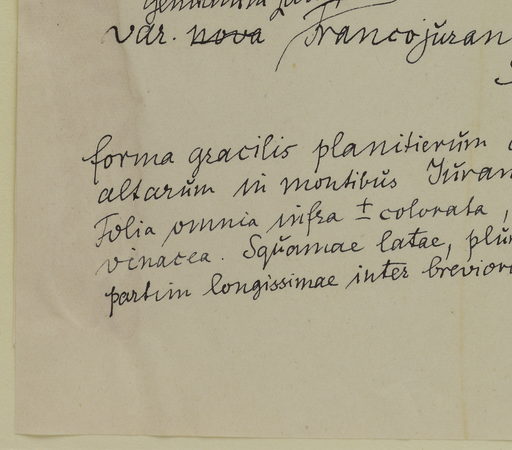 var. nova Francojuran
forma gracilis planitierum
altarum in montibus Juran
Folia omnia infra ± colorata,
vinacea. Squamae latae, plur
partim longissimae inter breviora